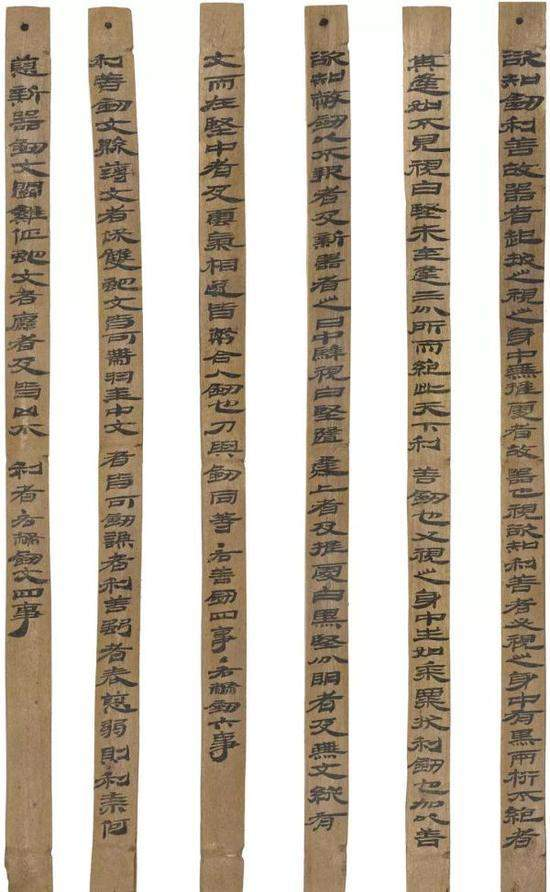 欲知劍利善故器者起拔之視之身中無推處者故器也視欲知利善者必視之身中有黑兩桁不絕者
其逢如不見視白堅未至逢三分所而絕此天下利善劍也又視之身中生如黍粟狀利劍也加以善
欲知幣劍以不報者及新器者之日中騂視白堅隨逢上者及推處白黑堅分明者及無文縱有
文而在堅中者及雲氣相遂皆幣合人劍也刀與劍同等●右善劍四事●右幣劍六事
利善劍文縣薄文者保雙蛇文皆可帶羽圭中文者皆可劍謙者利善強者表惡弱則利奈何
惡新器劍文鬭雞佂蛇文者麤者及皆凶不利者右幣劍文四事